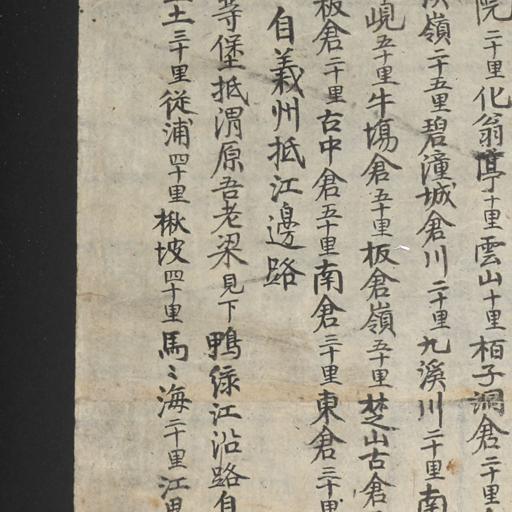 院二十里化翁亭十里雲山十里栢子洞倉二十里
嶺二十五里碧潼城倉川二十里九溪川二十里南
峴五十里牛場倉五十里板倉嶺五十里楚山古倉
板倉二十里古中倉五十里南倉三十里東倉三十里
自義州抵江邊路
等堡抵渭原吾老梁見下鴨綠江沿路自
土三十里從浦四十里楸坡四十里馬〻海二十里江界